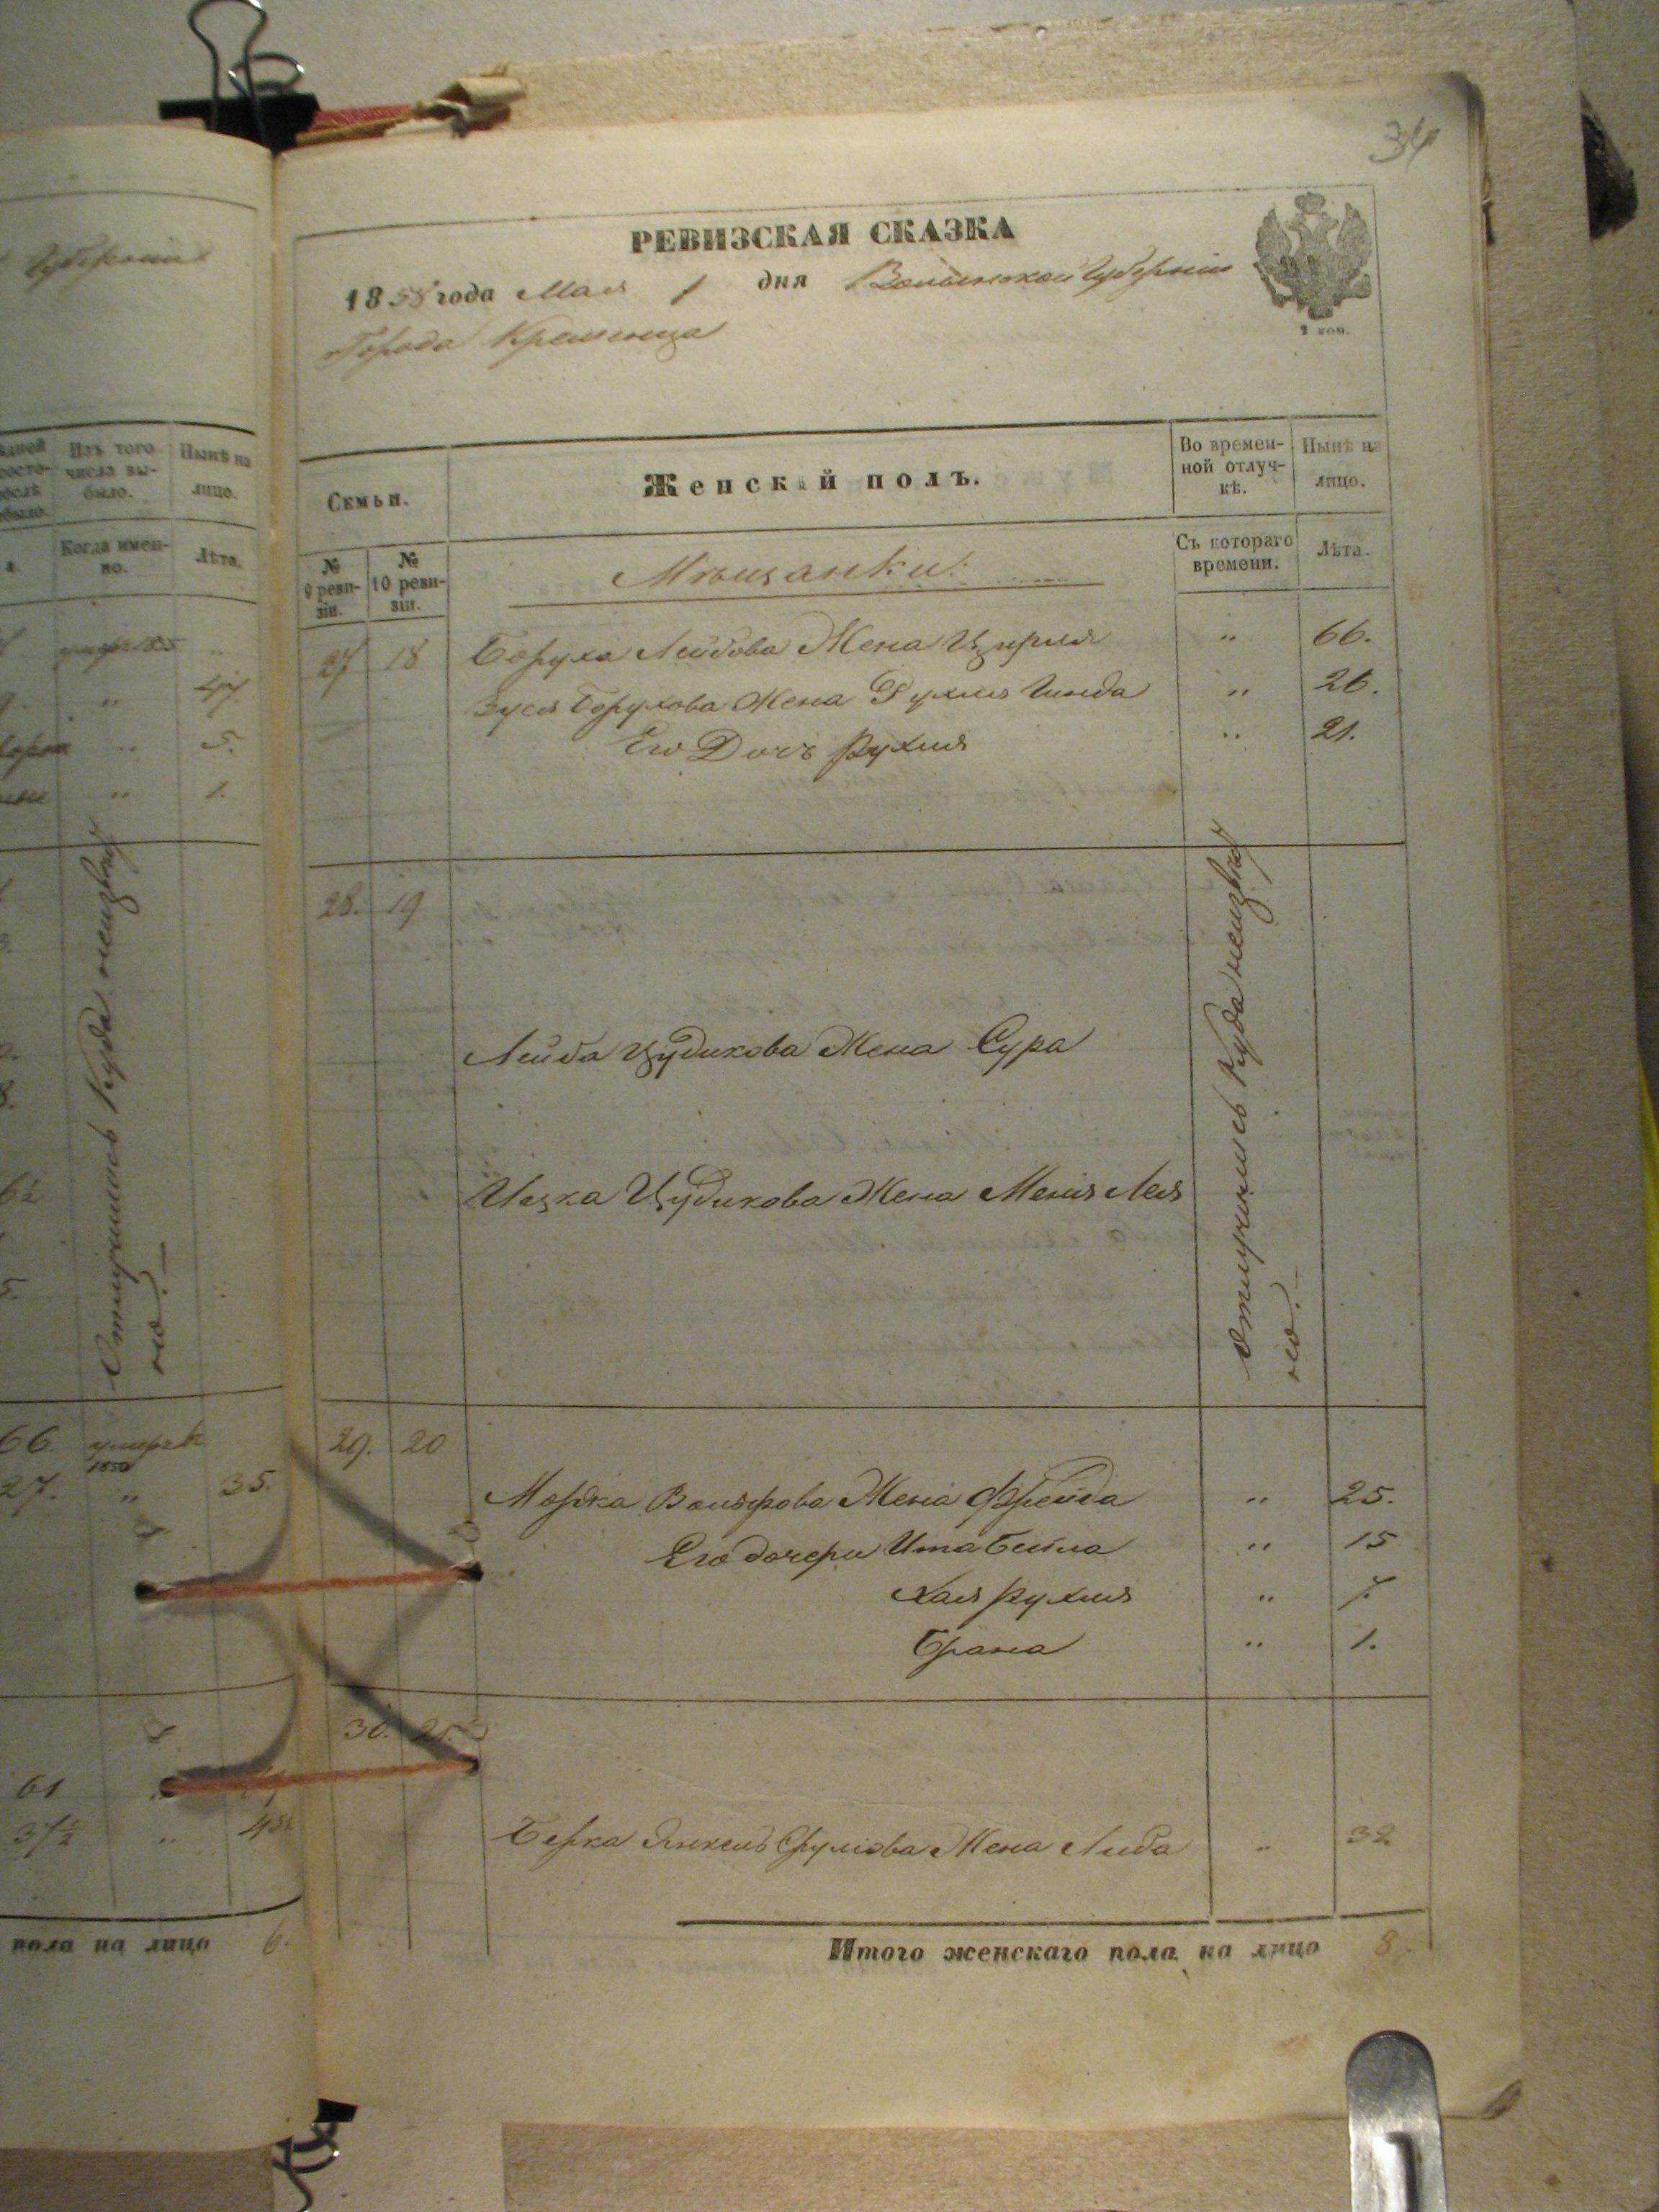 34
РЕВИЗСКАЯ СКАЗКА
1858 года Мая 1 дня Волынской Губернии
Города Кременца
2 коп.
Семьи.
Женскій полъ.
Во времен-
ной отлуч-
кѣ.
Нынѣ на
лицо.
№
9 реви-
зіи.
№
10 реви-
зіи.
Мѣщанки:
Съ котораго
времени.
Лѣта.
27 18 Боруха Лейбова Жена Ципра " 66.
Зуся Борухова Жена Рухля Гинда " 26.
Его Дочь Рухля " 21.
28. 19
Лейба Цудикова Жена Сура
Ицка Цудикова Жена Менія Лея
Отлучились Куда неизвѣст
но. —
29. 20
Мошка Вольфова Жена Фрейда " 25.
Его дочери Ита Бейла " 15
Хая Рухля " 7.
Брана " 1.
30. 21.
Берка Янкель Сруліова Жена Либа " 32
Итого женскаго пола на лицо 8.
Губерніи
Изъ того
числа вы-
было.
Нынѣ на
лицо.
Когда имен-
но.
Лѣта.
" 47.
" 5.
" 1.
Отлучились Куда неизвѣст
но. —
66. умеръ
1850
27. " 35.
61
37½ "
пола на лицо 6.